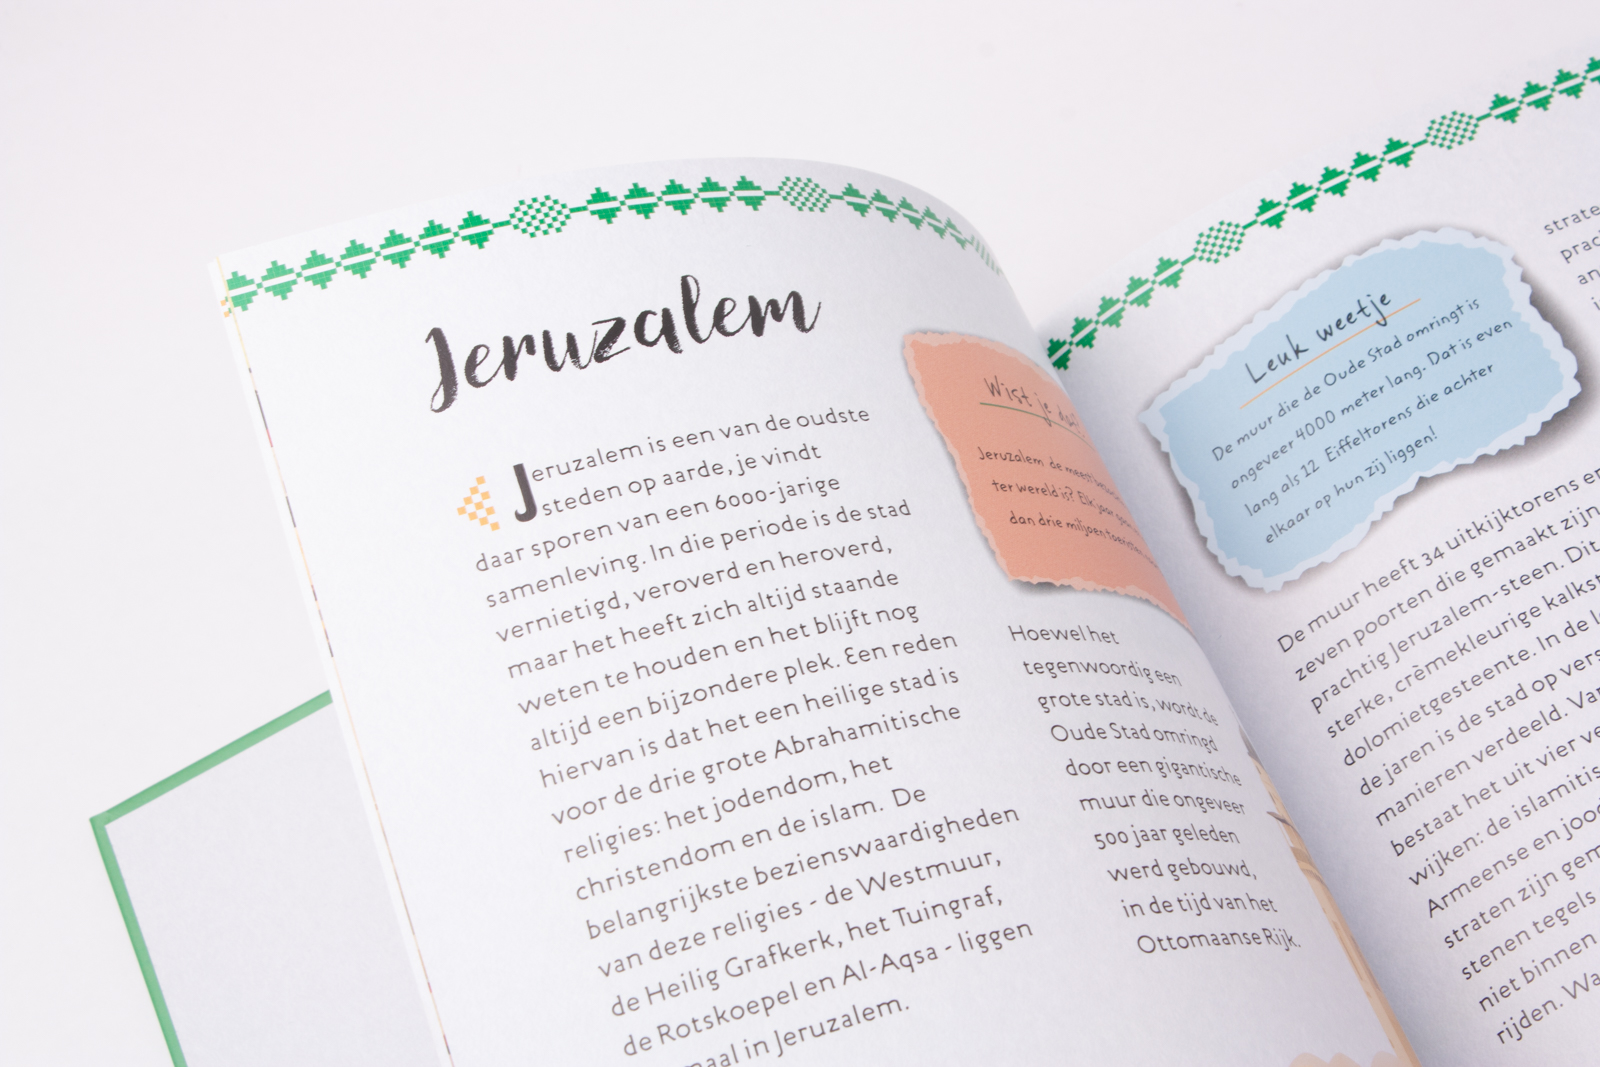 Jeruzalem
Jeruzalem is een van de oudste
steden op aarde, je vindt
daar sporen van een 6000-jarige
samenleving. In die periode is de stad
vernietigd, veroverd en heroverd,
maar het heeft zich altijd staande
weten te houden en het blijft nog
altijd een bijzondere plek. Een reden
hiervan is dat het een heilige stad is
voor de drie grote Abrahamitische
religies: het jodendom, het
christendom en de islam. De
belangrijkste bezienswaardigheden
van deze religies - de Westmuur,
de Heilig Grafkerk, het Tuingraf,
de Rotskoepel en Al-Aqsa - liggen
maal in Jeruzalem.
Wist je dat
Jeruzalem de meest
ter wereld is? Elk jaar
dan drie miljoen toeristen
Hoewel het
tegenwoordig een
grote stad is, wordt de
Oude Stad omringd
door een gigantische
muur die ongeveer
500 jaar geleden
werd gebouwd,
in de tijd van het
Ottomaanse Rijk.
Leuk weetje
De muur die de Oude Stad omringt is
ongeveer 4000 meter lang. Dat is even
lang als 12 Eiffeltorens die achter
elkaar op hun zij liggen!
De muur heeft 34 uitkijktorens en
zeven poorten die gemaakt zijn
prachtig Jeruzalem-steen. Dit
sterke, crèmekleurige kalkst
dolomietgesteente. In de l
de jaren is de stad op vers
manieren verdeeld. Van
bestaat het uit vier ve
wijken: de islamitis
Armeense en jood
straten zijn gem
stenen tegels
niet binnen
rijden. Wa
strate
prac
an